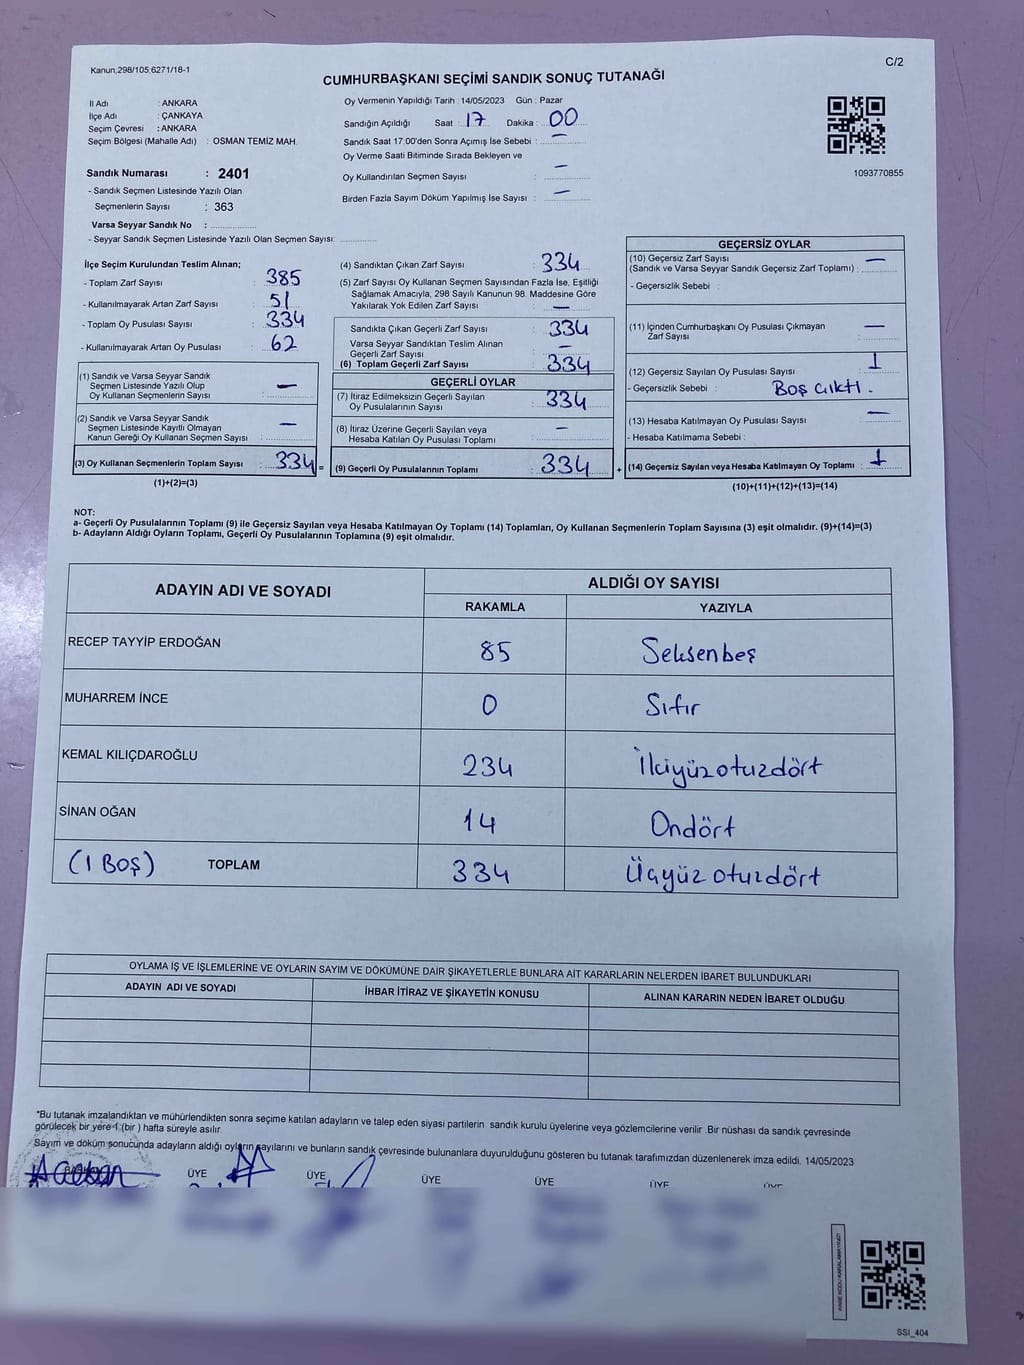 Kanun,298/105,6271/18-1
C/2
CUMHURBAŞKANI SEÇİMİ SANDIK SONUÇ TUTANAĞI
İl Adı : ANKARA
İlçe Adı : ÇANKAYA
Seçim Çevresi : ANKARA
Seçim Bölgesi (Mahalle Adı) : OSMAN TEMİZ MAH.
Sandık Numarası : 2401
- Sandık Seçmen Listesinde Yazılı Olan
Seçmenlerin Sayısı : 363
Varsa Seyyar Sandık No :
- Seyyar Sandık Seçmen Listesinde Yazılı Olan Seçmen Sayısı:
Oy Vermenin Yapıldığı Tarih : 14/05/2023 Gün : Pazar
Sandığın Açıldığı Saat : 17 Dakika : 00
Sandık Saat 17:00'den Sonra Açımış İse Sebebi : —
Oy Verme Saati Bitiminde Sırada Bekleyen ve
Oy Kullandırılan Seçmen Sayısı : —
Birden Fazla Sayım Döküm Yapılmış İse Sayısı : —
1093770855
İlçe Seçim Kurulundan Teslim Alınan;
- Toplam Zarf Sayısı : 385
- Kullanılmayarak Artan Zarf Sayısı : 51
- Toplam Oy Pusulası Sayısı : 334
- Kullanılmayarak Artan Oy Pusulası : 62
(1) Sandık ve Varsa Seyyar Sandık
Seçmen Listesinde Yazılı Olup
Oy Kullanan Seçmenlerin Sayısı : —
(2) Sandık ve Varsa Seyyar Sandık
Seçmen Listesinde Kayıtlı Olmayan
Kanun Gereği Oy Kullanan Seçmen Sayısı : —
(3) Oy Kullanan Seçmenlerin Toplam Sayısı : 334 =
(1)+(2)=(3)
(4) Sandıktan Çıkan Zarf Sayısı : 334
(5) Zarf Sayısı Oy Kullanan Seçmen Sayısından Fazla İse, Eşitliği
Sağlamak Amacıyla, 298 Sayılı Kanunun 98. Maddesine Göre
Yakılarak Yok Edilen Zarf Sayısı : —
Sandıkta Çıkan Geçerli Zarf Sayısı : 334
Varsa Seyyar Sandıktan Teslim Alınan
Geçerli Zarf Sayısı : —
(6) Toplam Geçerli Zarf Sayısı : 334
GEÇERLİ OYLAR
(7) İtiraz Edilmeksizin Geçerli Sayılan
Oy Pusulalarının Sayısı : 334
(8) İtiraz Üzerine Geçerli Sayılan veya
Hesaba Katılan Oy Pusulası Toplamı : —
(9) Geçerli Oy Pusulalarının Toplamı : 334 +
GEÇERSİZ OYLAR
(10) Geçersiz Zarf Sayısı —
(Sandık ve Varsa Seyyar Sandık Geçersiz Zarf Toplamı) :
- Geçersizlik Sebebi :
(11) İçinden Cumhurbaşkanı Oy Pusulası Çıkmayan
Zarf Sayısı : —
(12) Geçersiz Sayılan Oy Pusulası Sayısı : 1
- Geçersizlik Sebebi : Boş çıktı.
(13) Hesaba Katılmayan Oy Pusulası Sayısı : —
- Hesaba Katılmama Sebebi :
(14) Geçersiz Sayılan veya Hesaba Katılmayan Oy Toplamı : 1
(10)+(11)+(12)+(13)=(14)
NOT:
a- Geçerli Oy Pusulalarının Toplamı (9) ile Geçersiz Sayılan veya Hesaba Katılmayan Oy Toplamı (14) Toplamları, Oy Kullanan Seçmenlerin Toplam Sayısına (3) eşit olmalıdır. (9)+(14)=(3)
b- Adayların Aldığı Oyların Toplamı, Geçerli Oy Pusulalarının Toplamına (9) eşit olmalıdır.
ADAYIN ADI VE SOYADI ALDIĞI OY SAYISI
RAKAMLA YAZIYLA
RECEP TAYYİP ERDOĞAN 85 Seksenbeş
MUHARREM İNCE 0 Sıfır
KEMAL KILIÇDAROĞLU 234 İkiyüzotuzdört
SİNAN OĞAN 14 Ondört
(1 BOŞ) TOPLAM 334 Üçyüz otuzdört
OYLAMA İŞ VE İŞLEMLERİNE VE OYLARIN SAYIM VE DÖKÜMÜNE DAİR ŞİKAYETLERLE BUNLARA AİT KARARLARIN NELERDEN İBARET BULUNDUKLARI
ADAYIN ADI VE SOYADI İHBAR İTİRAZ VE ŞİKAYETİN KONUSU ALINAN KARARIN NEDEN İBARET OLDUĞU
*Bu tutanak imzalandıktan ve mühürlendikten sonra seçime katılan adayların ve talep eden siyasi partilerin sandık kurulu üyelerine veya gözlemcilerine verilir .Bir nüshası da sandık çevresinde
görülecek bir yere 1 (bir ) hafta süreyle asılır.
Sayım ve döküm sonucunda adayların aldığı oyların sayılarını ve bunların sandık çevresinde bulunanlara duyurulduğunu gösteren bu tutanak tarafımızdan düzenlenerek imza edildi. 14/05/2023
ÜYE ÜYE ÜYE ÜYE ÜYE ÜYE
SSİ_404